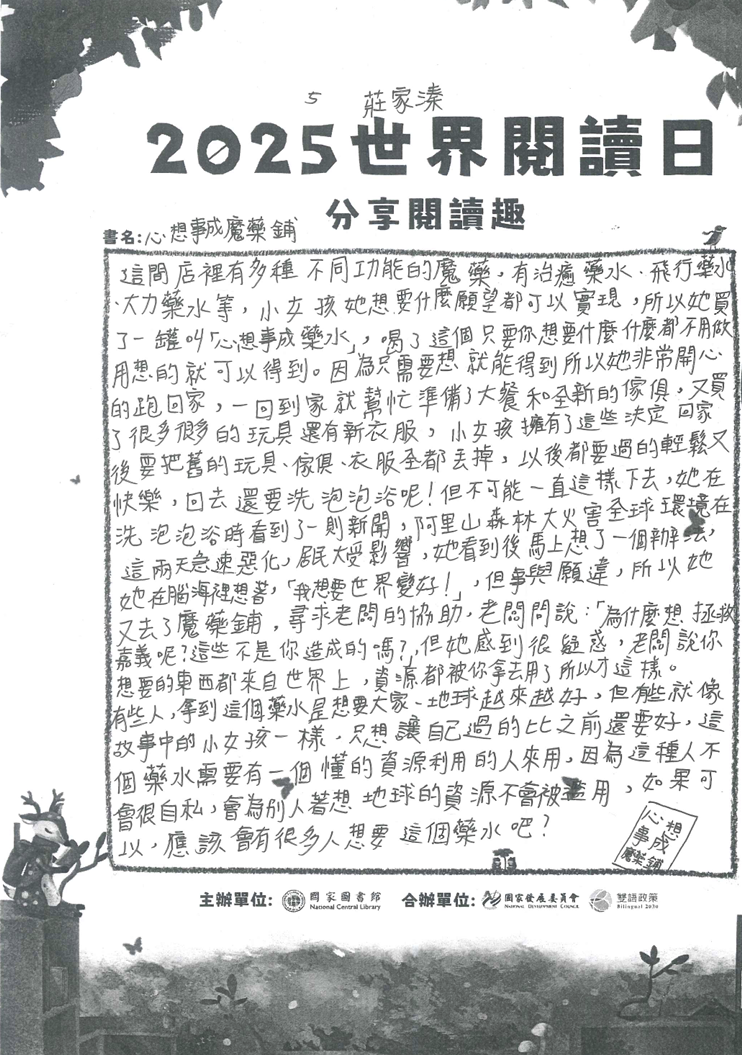 5 莊家溱
2025世界閱讀日
分享閱讀趣
書名:心想事成魔藥鋪
這間店裡有多種不同功能的魔藥,有治癒藥水、飛行藥水
、大力藥水等,小女孩她想要什麼願望都可以實現,所以她買
了一罐叫「心想事成藥水」,喝了這個只要你想要什麼什麼都不用做
用想的就可以得到。因為只需要想就能得到所以她非常開心
的跑回家,一回到家就幫忙準備了大餐和全新的傢俱,又買
了很多很多的玩具還有新衣服,小女孩擁有了這些決定回家
後要把舊的玩具、傢俱、衣服全都丟掉,以後都要過的輕鬆又
快樂,回去還要洗泡泡浴呢!但不可能一直這樣下去,她在
洗泡泡浴時看到了一則新聞,阿里山森林大火害全球環境在
這兩天急速惡化,居民大受影響,她看到後馬上想了一個辦法,
她在腦海裡想著,「我想要世界變好!」,但事與願違,所以她
又去了魔藥鋪,尋求老闆的協助,老闆問說:「為什麼想拯救
嘉義呢?這些不是你造成的嗎?,但她感到很疑惑,老闆說你
想要的東西都來自世界上,資源都被你拿去用了所以才這樣。
有些人,拿到這個藥水是想要大家、地球越來越好,但有些就像
故事中的小女孩一樣,只想讓自己過的比之前還要好,這
個藥水需要有一個懂的資源利用的人來用,因為這種人不
會很自私,會為別人著想地球的資源不會被濫用,如果可
以,應該會有很多人想要這個藥水吧?
心想
事成
魔藥鋪
主辦單位: 國家圖書館 合辦單位: 國家發展委員會 雙語政策
National Central Library NATIONAL DEVELOPMENT COUNCIL Bilingual 2030